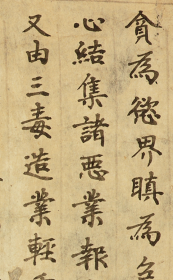 貪為慾界瞋為色
心結集諸惡業報
又由三毒造業輕